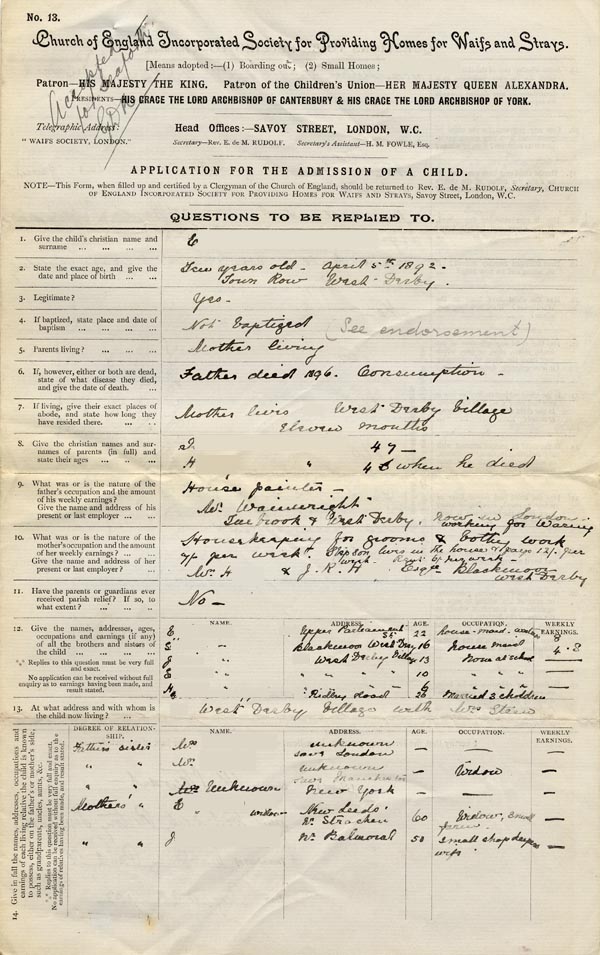 No. 13.
Church of England Incorporated Society for Providing Homes for Waifs and Strays.
Accepted for Seaforth
[Means adopted:—(1) Boarding out; (2) Small Homes;
Patron—HIS MAJESTY THE KING. Patron of the Children's Union—HER MAJESTY QUEEN ALEXANDRA.
PRESIDENTS—HIS GRACE THE LORD ARCHBISHOP OF CANTERBURY & HIS GRACE THE LORD ARCHBISHOP OF YORK.
Telegraphic Address: Head Offices:—SAVOY STREET, LONDON, W.C.
"WAIFS SOCIETY, LONDON." Secretary—Rev. E. de M. RUDOLF. Secretary's Assistant—H. M. FOWLE, Esq.
APPLICATION FOR THE ADMISSION OF A CHILD.
NOTE—This Form, when filled up and certified by a Clergyman of the Church of England, should be returned to Rev. E. de M. RUDOLF, Secretary, CHURCH
OF ENGLAND INCORPORATED SOCIETY FOR PROVIDING HOMES FOR WAIFS AND STRAYS, Savoy Street, London, W.C.
QUESTIONS TO BE REPLIED TO.
1. Give the child's christian name and
surname ... ... ... ...
E
2. State the exact age, and give the
date and place of birth ... ...
Ten years old - April 5th 1892 -
Town Row West Derby.
3. Legitimate? ... ... ...
Yes -
4. If baptized, state place and date of
baptism ... ... ... ...
Not baptized (See endorsement)
5. Parents living? ... ... ...
Mother living
6. If, however, either or both are dead,
state of what disease they died,
and give the date of death. ...
Father died 1896. Consumption -
7. If living, give their exact places of
abode, and state how long they
have resided there. ... ...
Mother lives West Derby Village
Eleven months
8. Give the christian names and sur-
names of parents (in full) and
state their ages ... ... ...
47 -
H " 48 when he died
9. What was or is the nature of the
father's occupation and the amount
of his weekly earnings?
Give the name and address of his
present or last employer ... ...
House painter -
Mr. Wainwright
Tuebrook & West Derby. Now in London
working for Waring
10. What was or is the nature of the
mother's occupation and the amount
of her weekly earnings? ... ...
Give the name and address of her
present or last employer? ...
Housekeeping for grooms & bothy work
7/- per week. Stepson lives in the house & pays 12/- per
week. Rent 6/- per week -
Mr. H & J. R. H Esqre Blackmoor
West Derby
11. Have the parents or guardians ever
received parish relief? If so, to
what extent? ... ... ...
No -
12. Give the names, addresses, ages,
occupations and earnings (if any)
of all the brothers and sisters
of the child ... ... ...
*** Replies to this question must be very full
and exact.
No application can be received without full
enquiry as to earnings having been made, and
result stated.
NAME. ADDRESS. AGE. OCCUPATION. WEEKLY EARNINGS.
E. Upper Parliament St 22 house-maid
S. Blackmoor West Derby 16 house maid
J West Derby Village 13 Now at school —
E " " " 10 " " " —
S " " " 6 " " "
H Ridley Road 26 Married 3 children
13. At what address and with whom is
the child now living? ... ...
West Derby Village with Mrs
14. Give in full the names, addresses, occupations and
earnings of each living relative the child is known
to possess, either on the father's or mother's side,
such as grandparents, uncles, aunts, &c.
*** Replies to this question must be very full and exact.
No application can be received without full enquiry as to the
earnings of relatives having been made, and result stated.
DEGREE OF RELATION-
SHIP. NAME. ADDRESS. AGE. OCCUPATION. WEEKLY
EARNINGS.
Father's sister Mrs unknown
near London — — —
" " Mrs. unknown
near Manchester — Widow —
" " Unknown New York — — —
Mothers' " E widow New Leeds
Nr. Strachen 60 Widow, small
farm. —
" " J Nr. Balmoral 50 Small shop keepers
wife —